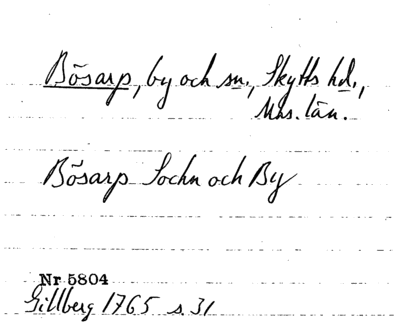 Bösarp, by och sn., Skytts hd.,
Mhs. län.
Bösarp Sochn och By
Nr 5804
Gillberg 1765 s. 31